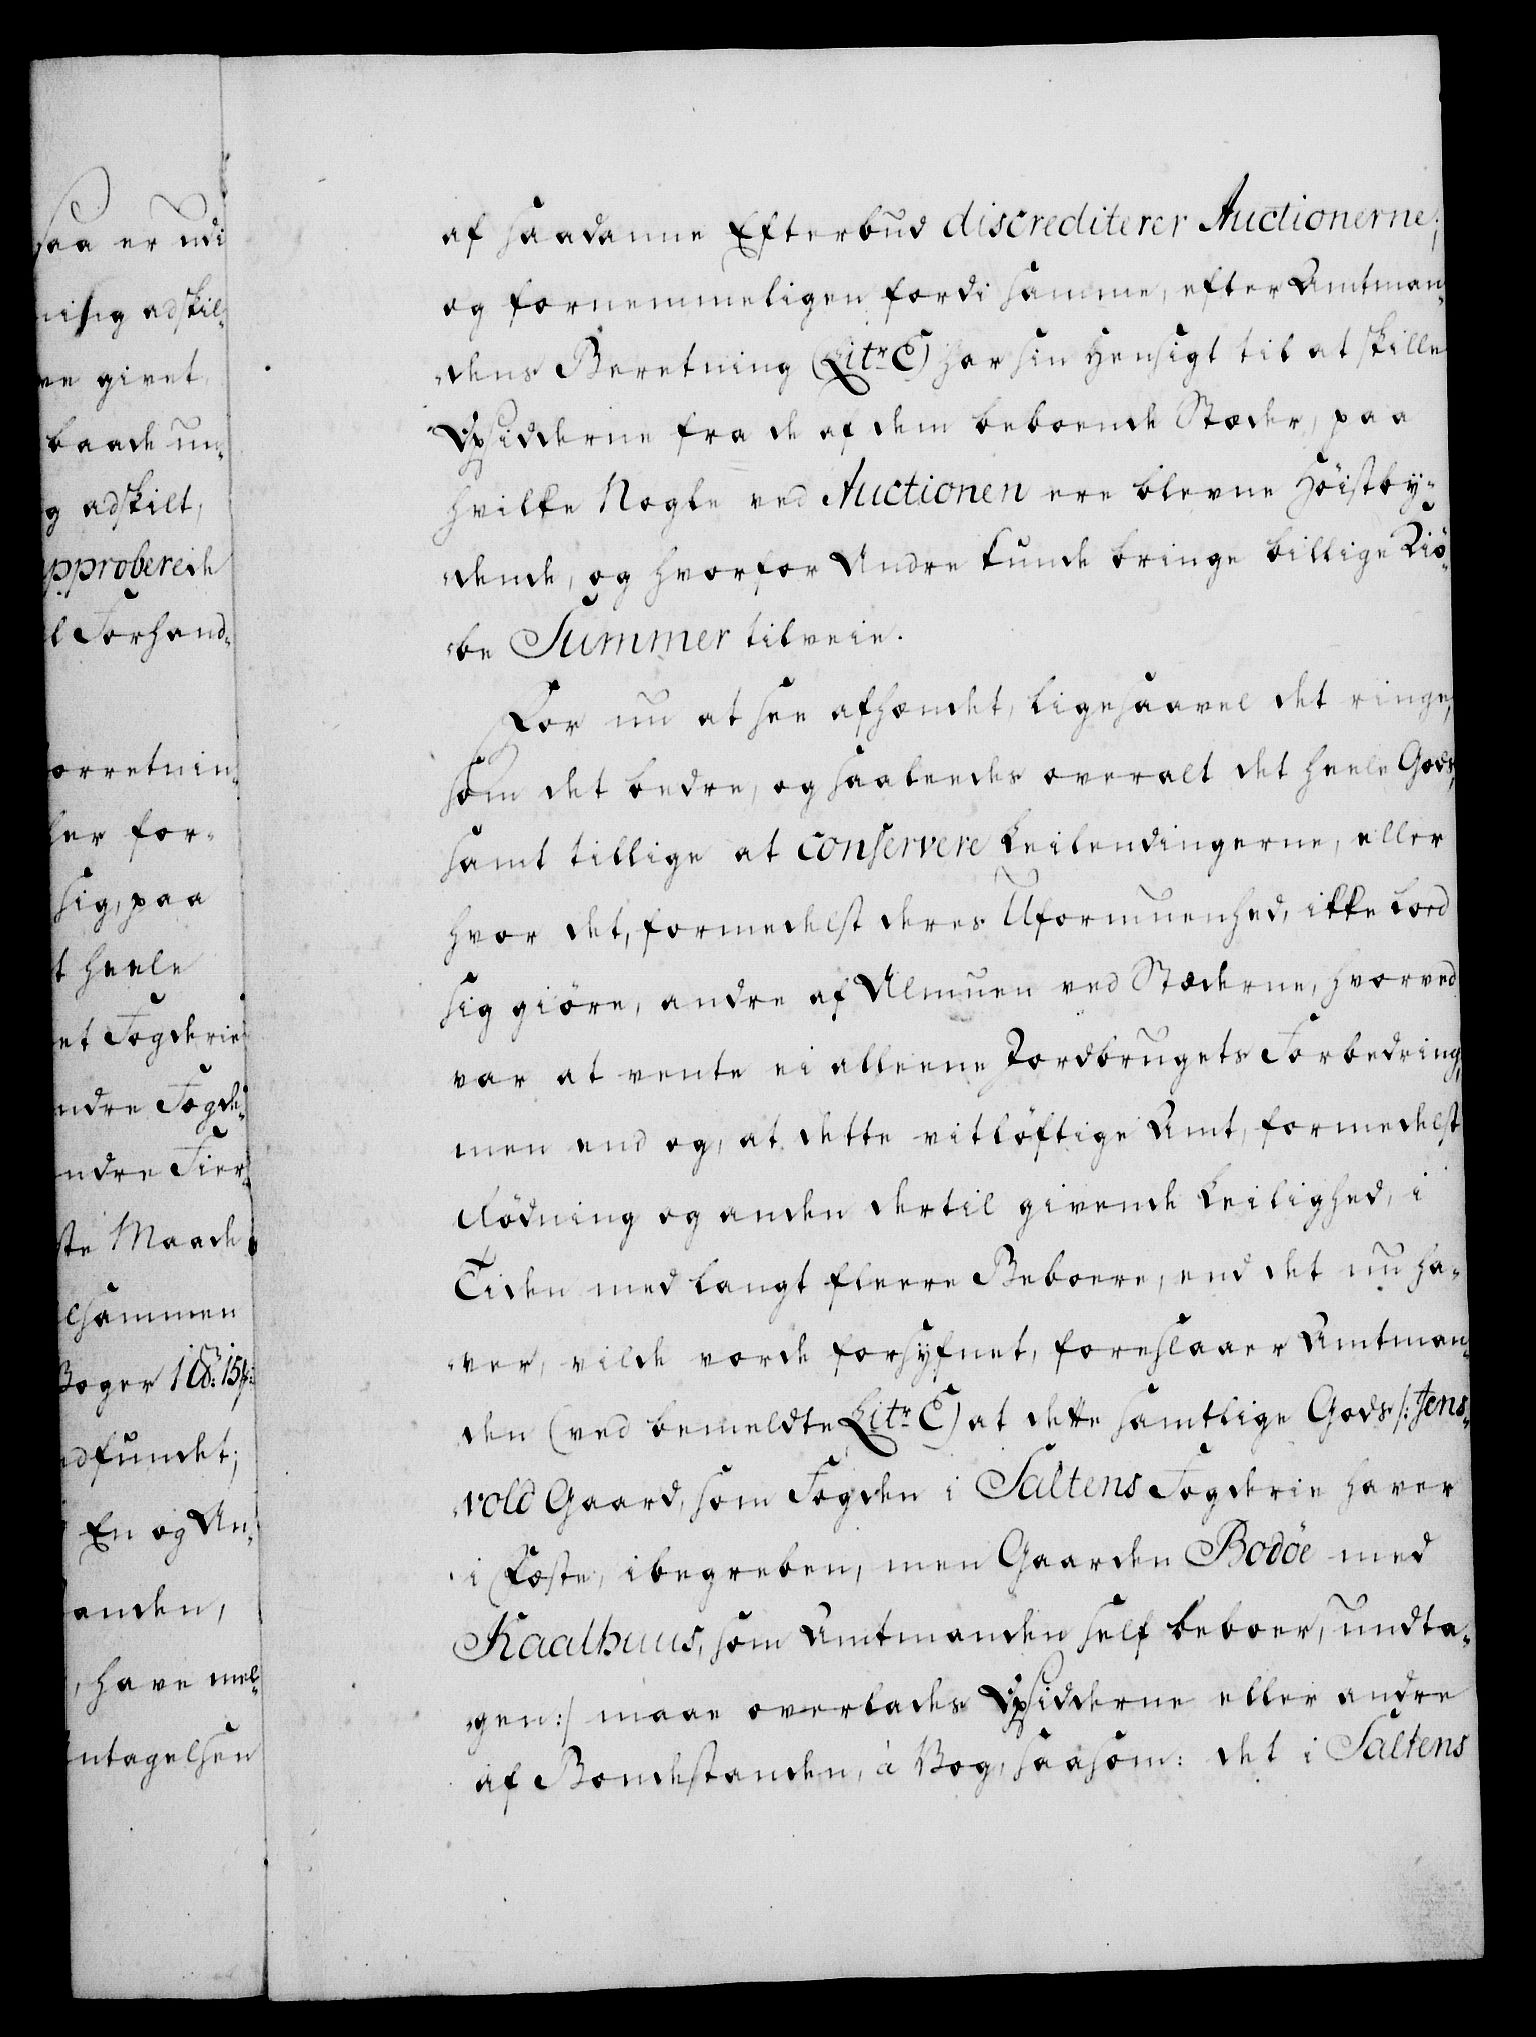 saa er udi
nisig adskil-
ve givet,
baade un-
g adskilt,
pproberede
l Forhand-
orretnin-
her for-
sig, paa
t heele
et Fogderie
ndre Fogde-
ndre Fier-
ste Maade
lsammen
Boger
idfundet;
En og An-
anden,
, have mel-
ntagelsen
af saadanne Efterbud discrediterer Auctionerne;
og fornemmeligen fordi samme, efter Amtman-
dens Beretning (Litr. C) har sin Hensigt til at skille
Opsidderne fra de af dem beboende Stæder, paa
hvilke Nogle ved Auctionen ere blevne Høistby-
dende, og hvorfor Andre kunde bringe billige Kiø-
be Summer tilveie.
For nu at see afhændet, ligesaavel det ringe,
som det bedre, og saaleedes overalt det heele Gods,
samt tillige at conservere Leilendingerne, eller
hvor det, formedelst deres Uformuenhed, ikke lod
sig giöre, andre af Almuen ved Stæderne, hvorved
var at vente ei alleene Jordbrugets Forbedring,
men end og, at dette vitlöftige Amt, formedelst
Rödning og anden dertil givende Leilighed, i
Tiden med langt fleere Beboere, end det nu ha-
ver, vilde vorde forsyfnet, foreslaaer Amtman-
den (ved bemeldte Litr. C) at dette samtlige Gods /: Jens-
vold Gaard, som Fogden i Saltens Fogderie haver
i Fæste, ibegreben, men Gaarden Bodöe med
Kaalhuus, som Amtmanden self beboer, undta-
gen :/ maae overlades Opsidderne eller andre
af Bondestanden, à Bog, saasom: det i Saltens